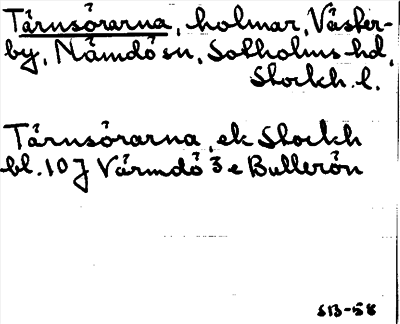 Tärnsörarna, holmar, Väster-
by, Nämdö sn, Sotholms hd,
Stockh. l.
Tärnsörarna, ek Stockh
bl. 10 J Värmdö 3 e Bullerön
SB-58